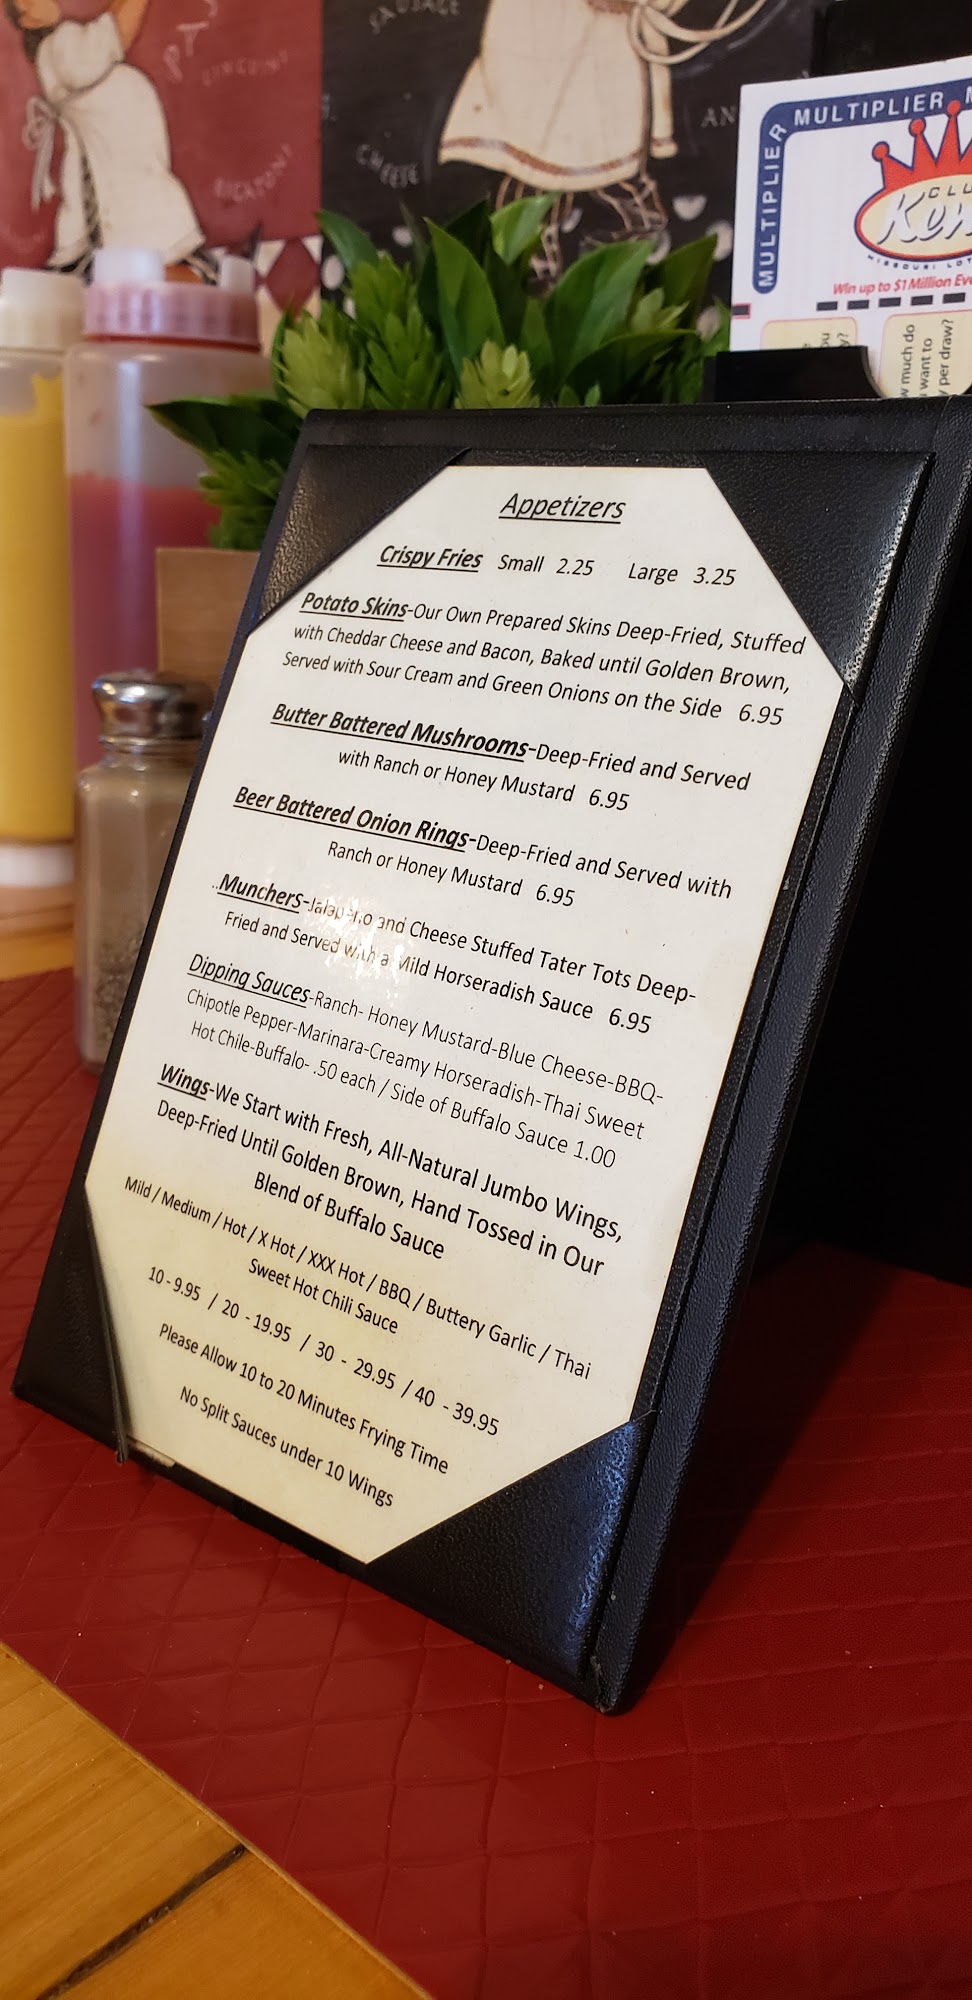 SAUSAGE
LINGUINI
CHEESE
RIGATONI
AN
MULTIPLIER MULTIPLIER
CLU
Ken
Win up to $1 Million Eve
w much do
want to
per draw?
Appetizers
Crispy Fries Small 2.25 Large 3.25
Potato Skins-Our Own Prepared Skins Deep-Fried, Stuffed
with Cheddar Cheese and Bacon, Baked until Golden Brown,
Served with Sour Cream and Green Onions on the Side 6.95
Butter Battered Mushrooms-Deep-Fried and Served
with Ranch or Honey Mustard 6.95
Beer Battered Onion Rings-Deep-Fried and Served with
Ranch or Honey Mustard 6.95
Munchers-Jalapeno and Cheese Stuffed Tater Tots Deep-
Fried and Served with a Mild Horseradish Sauce 6.95
Dipping Sauces-Ranch- Honey Mustard-Blue Cheese-BBQ-
Chipotle Pepper-Marinara-Creamy Horseradish-Thai Sweet
Hot Chile-Buffalo- .50 each / Side of Buffalo Sauce 1.00
Wings-We Start with Fresh, All-Natural Jumbo Wings,
Deep-Fried Until Golden Brown, Hand Tossed in Our
Blend of Buffalo Sauce
Mild / Medium / Hot / X Hot / XXX Hot / BBQ / Buttery Garlic / Thai
Sweet Hot Chili Sauce
10 - 9.95 / 20 - 19.95 / 30 - 29.95 / 40 - 39.95
Please Allow 10 to 20 Minutes Frying Time
No Split Sauces under 10 Wings